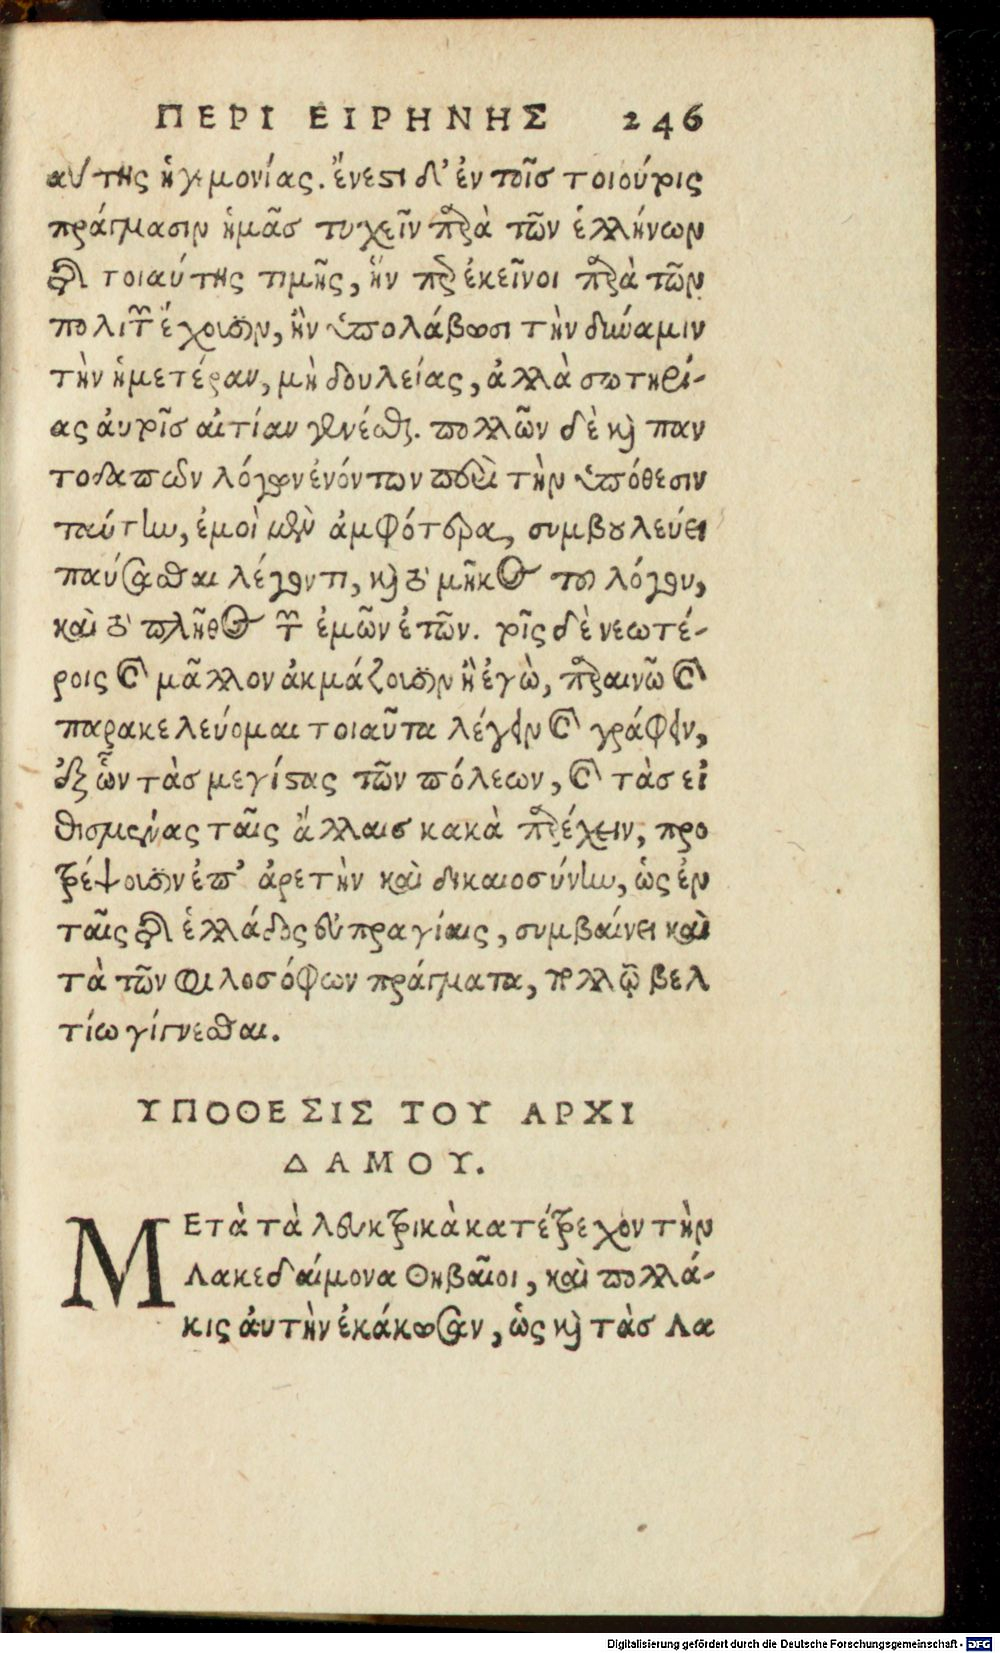 ΠΕΡΙ ΕΙΡΗΝΗΣ 246
αὐτῆς ἡγεμονίας. ἔνεστι δ' ἐν τοῖς τοιούτοις
πράγμασιν ἡμᾶς τυχεῖν παρὰ τῶν ἑλλήνων
τῆς τοιαύτης τιμῆς, ἥν περ ἐκεῖνοι παρὰ τῶν
πολιτῶν ἔχουσιν, ἢν ὑπολάβωσι τὴν δύναμιν
τὴν ἡμετέραν, μὴ δουλείας, ἀλλὰ σωτηρί-
ας ἀυτοῖς αἰτίαν γενέσθαι. πολλῶν δὲ καὶ παν
τοδαπῶν λόγων ἐνόντων περὶ τὴν ὑπόθεσιν
ταύτην, ἐμοὶ μὲν ἀμφότερα, συμβουλεύει
παύσασθαι λέγοντι, καὶ τὸ μῆκος τοῦ λόγου,
καὶ τὸ πλῆθος τῶν ἐμῶν ἐτῶν. τοῖς δὲ νεωτέ-
ροις καὶ μᾶλλον ἀκμάζουσιν ἢ ἐγὼ, παραινῶ καὶ
παρακελεύομαι τοιαῦτα λέγειν καὶ γράφειν,
ἐξ ὧν τὰς μεγίστας τῶν πόλεων, καὶ τὰς εἰ
θισμένας ταῖς ἄλλαις κακὰ παρέχειν, προ
τρέψουσιν ἐπ' ἀρετὴν καὶ δικαιοσύνην, ὡς ἐν
ταῖς τῆς ἑλλάδος εὐπραγίαις, συμβαίνει καὶ
τὰ τῶν φιλοσόφων πράγματα, πολλῷ βελ
τίω γίγνεσθαι.
ΥΠΟΘΕΣΙΣ ΤΟΥ ΑΡΧΙ
ΔΑΜΟΥ.
ΜΕτὰ τὰ λευκτρικὰ κατέτρεχον τὴν
Λακεδαίμονα Θηβαῖοι, καὶ πολλά-
κις ἀυτὴν ἐκάκωσαν, ὡς καὶ τὰς Λα
Digitalisierung gefördert durch die Deutsche Forschungsgemeinschaft - DFG